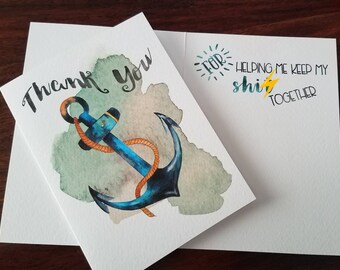 Thank You
FOR
HELPING ME KEEP MY
shit
TOGETHER